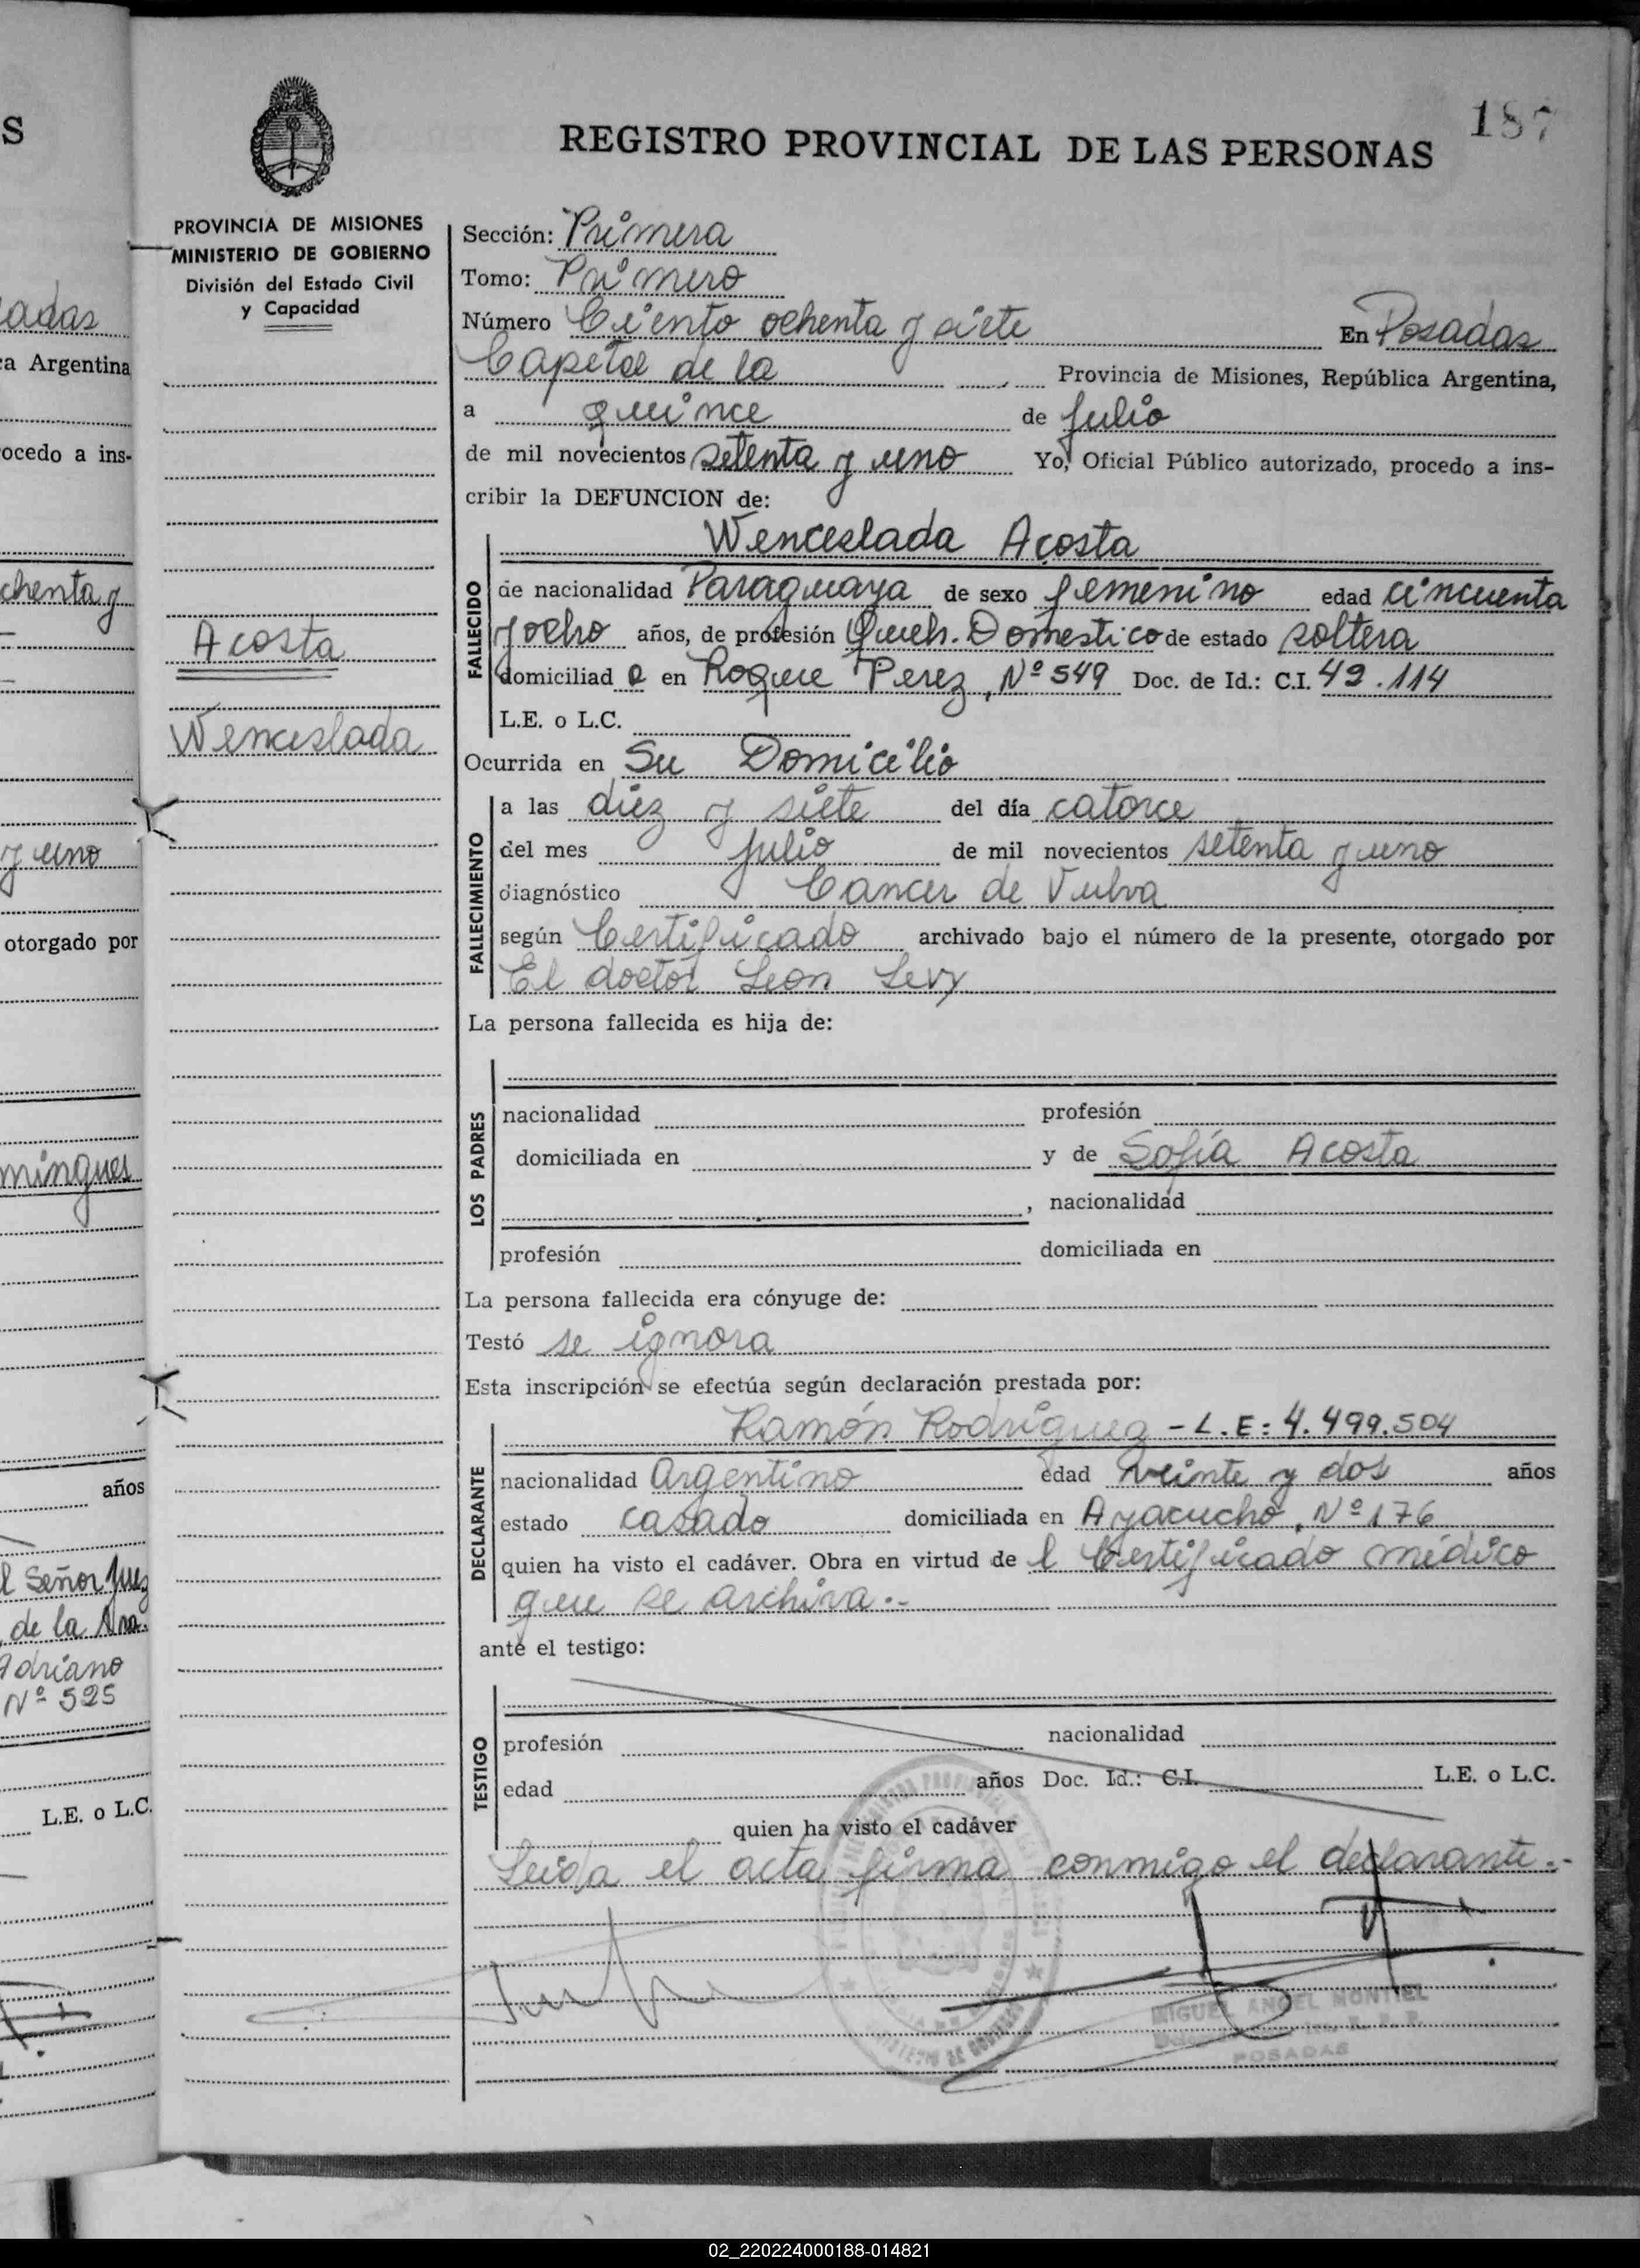 187
REGISTRO PROVINCIAL DE LAS PERSONAS
PROVINCIA DE MISIONES
MINISTERIO DE GOBIERNO
División del Estado Civil
y Capacidad
Acosta
Wenceslada
Sección: Primera
Tomo: Primero
Número Ciento ochenta y siete En Posadas
Capital de la Provincia de Misiones, República Argentina,
a quince de julio
de mil novecientos setenta y uno Yo, Oficial Público autorizado, procedo a ins-
cribir la DEFUNCION de:
Wenceslada Acosta
FALLECIDO
de nacionalidad Paraguaya de sexo femenino edad cincuenta
y ocho años, de profesión Queh. Domestico de estado soltera
domiciliad a en Roque Perez, Nº 549 Doc. de Id.: C.I. 49.114
L.E. o L.C.
Ocurrida en Su Domicilio
FALLECIMIENTO
a las diez y siete del día catorce
del mes julio de mil novecientos setenta y uno
diagnóstico Cancer de Vulva
según Certificado archivado bajo el número de la presente, otorgado por
El doctor Leon Levy
La persona fallecida es hija de:
LOS PADRES
nacionalidad profesión
domiciliada en y de Sofía Acosta
, nacionalidad
profesión domiciliada en
La persona fallecida era cónyuge de:
Testó se ignora
Esta inscripción se efectúa según declaración prestada por:
DECLARANTE
Ramón Rodríguez - L.E: 4.499.504
nacionalidad Argentino edad veinte y dos años
estado casado domiciliada en Ayacucho, Nº 176
quien ha visto el cadáver. Obra en virtud de l Certificado médico
que se archiva.-
ante el testigo:
TESTIGO
profesión nacionalidad
edad años Doc. Id.: C.I. L.E. o L.C.
quien ha visto el cadáver
Leida el acta firma conmigo el declarante.-
MIGUEL ANGEL MONTIEL
POSADAS
S
adas
a Argentina
ocedo a ins-
chenta y
y uno
otorgado por
mingues
años
l Señor Juez
de la
Adriano
Nº 525
L.E. o L.C.
02_220224000188-014821